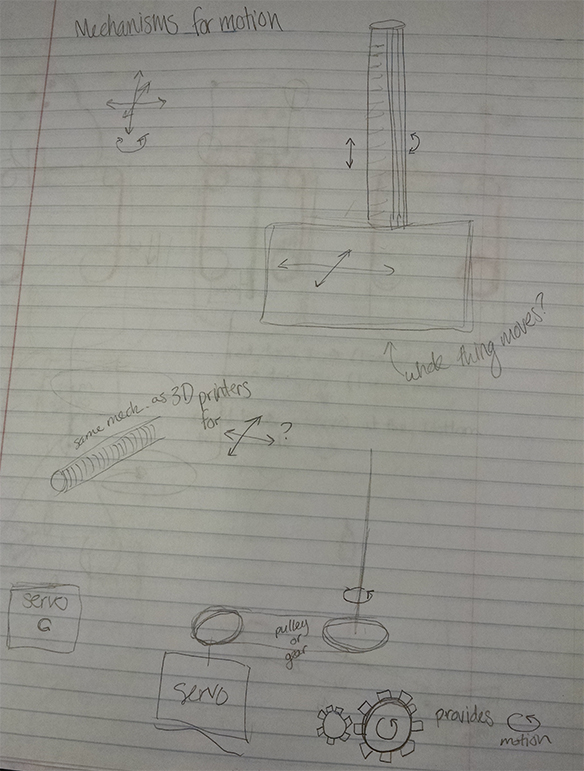 Mechanisms for motion
whole thing moves?
same mech. as 3D printers
for ?
servo
pulley
or
gear
servo
provides
motion